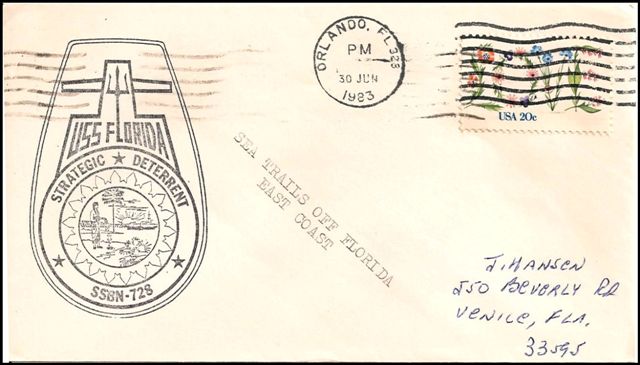 ORLANDO, FL 328
PM
30 JUN
1983
USA 20c
USS FLORIDA
STRATEGIC ★ DETERRENT
SSBN-728
SEA TRAILS OFF FLORIDA
EAST COAST
J. HANSEN
250 BEVERLY RD
VENICE, FLA.
33595